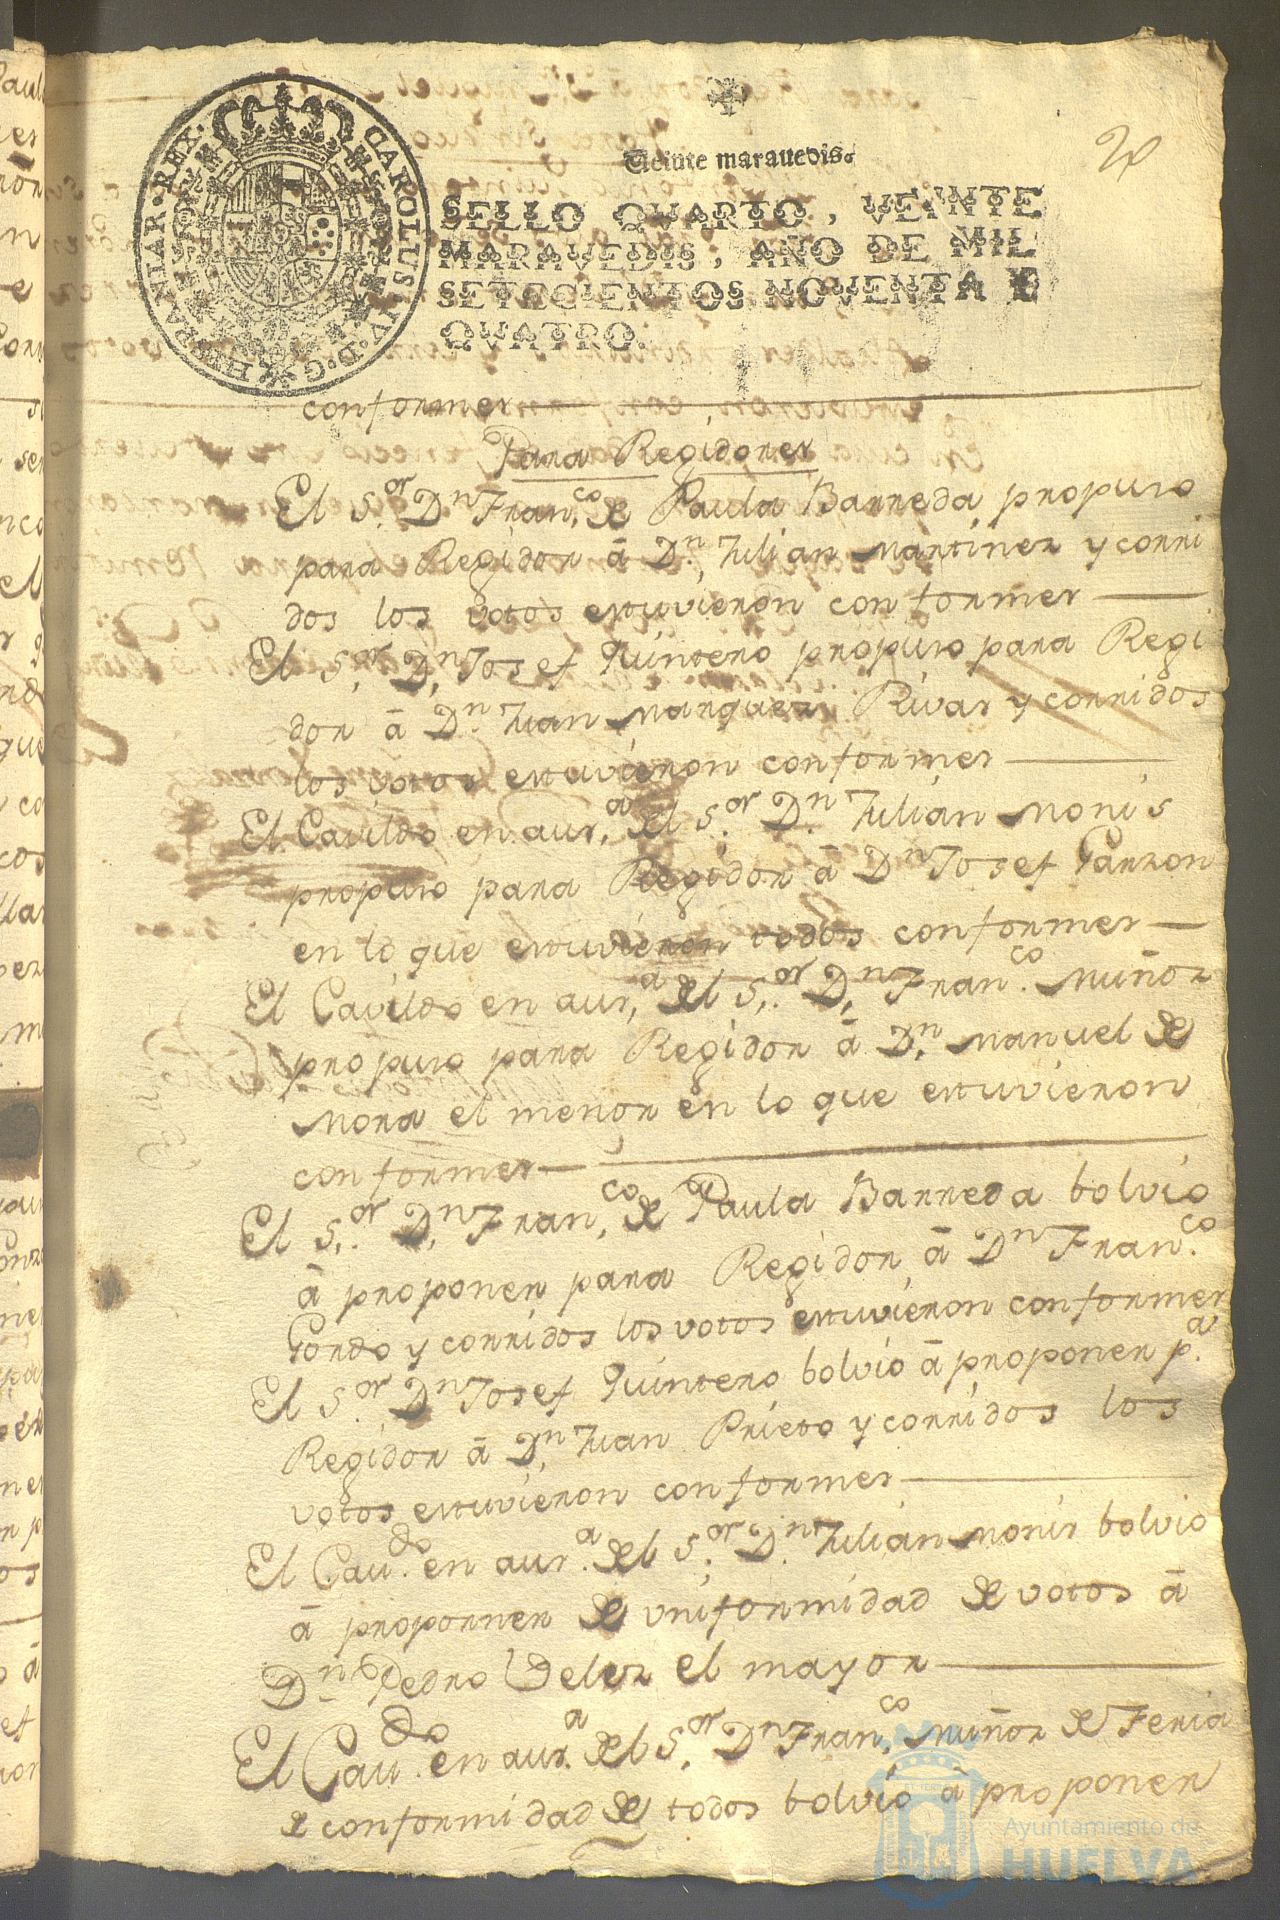 CAROLUS·IV·D·G·HISPANIAR·REX·
Veinte maravedis.
20
SELLO QVARTO, VEINTE
MARAVEDIS, AÑO DE MIL
SETECIENTOS NOVENTA E
QVATRO.
conformes
Para Regidores
El S.or Dn Fran.co de Paula Barreda propuso
para Regidor â Dn. Julian Martinez y corri
dos los votos estuvieron conformes
El S.or Dn Josef Quintero propuso para Regi
dor â Dn. Juan Marquez Rivas y corridos
los votos estuvieron conformes
El Cavildo en aus.a del S.or Dn. Julian Monis
propuso para Regidor â Dn Josef Garzon
en lo que estuvieron todos conformes
El Cavildo en aus.a del S.or Dn Fran.co Muñoz
propuso para Regidor â Dn. Manuel de
Mora el menor en lo que estuvieron
conformes
El S.or Dn Fran.co de Paula Barreda bolvio
â proponer para Regidor â Dn Fran.co
Gordo y corridos los votos estuvieron conformes
El S.or Dn Josef Quintero bolvio â proponer p.a
Regidor â Dn Juan Prieto y corridos los
votos estuvieron conformes
El Cav.do en aus.a del S.or Dn Julian Monis bolvio
â propornner de vniformidad de votos â
Dn Pedro Velez el mayor
El Cav.do en aus.a del S.or Dn Fran.co Muñoz de Feria
de conformidad de todos bolvio â proponer
Ayuntamiento de
HUELVA